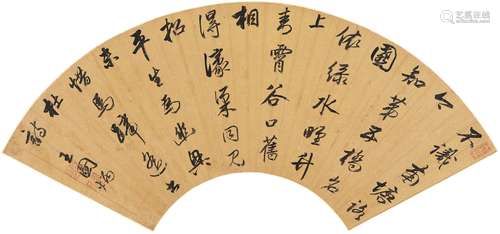 不識南塘路
今
知第五橋名
園
依綠水野竹
上
青霄谷口舊
相
得濠梁同見
招
平生為幽興
未
惜馬蹄遙書
杜
詩
王國
艺狐在线